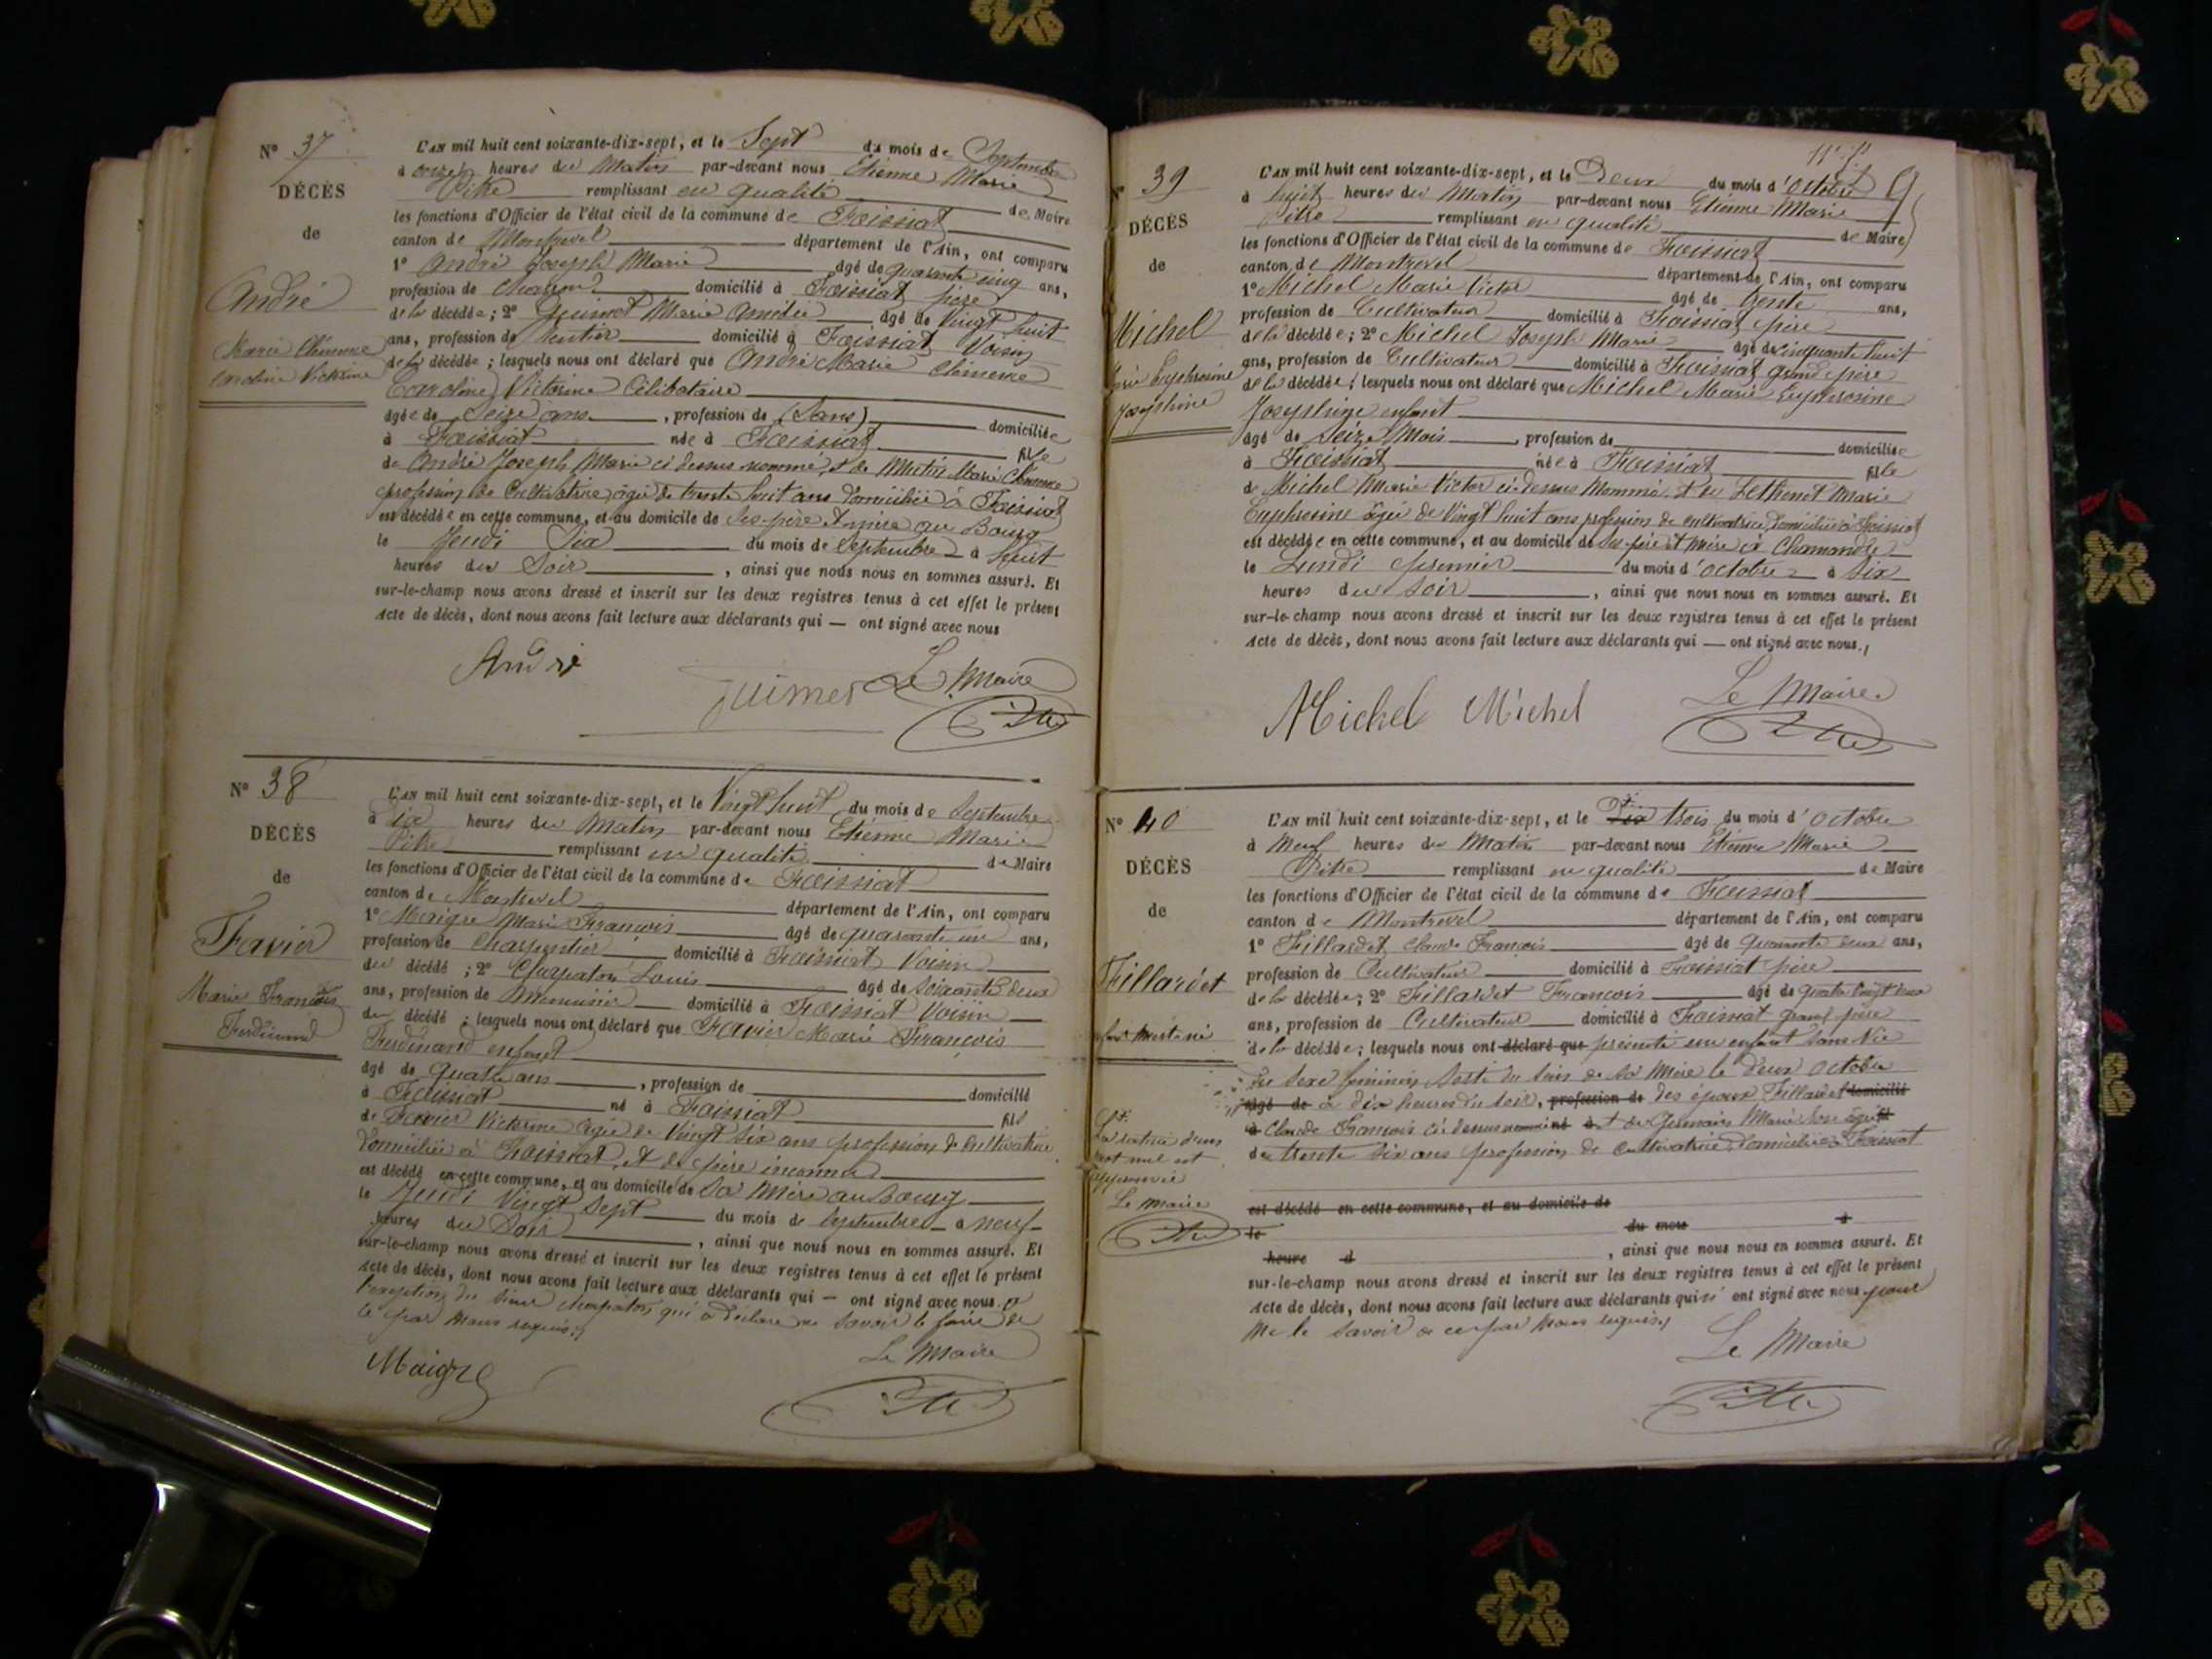 N° 37
DÉCÈS
de
André
Marie Clémence
Caroline Victorine
L'AN mil huit cent soixante-dix-sept, et le Sept du mois de Septembre
à onze heures du Matin par-devant nous Etienne Marie
Pitre remplissant en qualité de Maire
les fonctions d'Officier de l'état civil de la commune de Foissiat
canton de Montrevel département de l'Ain, ont comparu
1° André Joseph Marie âgé de quarante cinq ans,
profession de domicilié à Foissiat père
de la décédée; 2° Guimet Marie Amédée âgé de Vingt huit
ans, profession de Rentier domicilié à Foissiat Voisin
de la décédée; lesquels nous ont déclaré que André Marie Clémence
Caroline Victorine Célibataire
âgée de Seize ans, profession de (Sans) domiciliée
à Foissiat née à Foissiat fille
de André Joseph Marie ci dessus nommé, & de Marie Clémence
profession de Cultivatrice âgée de trente huit ans domiciliée à Foissiat
est décédée en cette commune, et au domicile de Ses père & mère au Bourg
le Jeudi Six du mois de Septembre à huit
heures du Soir, ainsi que nous nous en sommes assuré. Et
sur-le-champ nous avons dressé et inscrit sur les deux registres tenus à cet effet le présent
acte de décès, dont nous avons fait lecture aux déclarants qui — ont signé avec nous
André Guimet Le Maire
Pitre
N° 38
DÉCÈS
de
Favier
Marie François
Ferdinand
L'AN mil huit cent soixante-dix-sept, et le Vingt huit du mois de Septembre
à Dix heures du Matin par-devant nous Etienne Marie
Pitre remplissant en qualité de Maire
les fonctions d'Officier de l'état civil de la commune de Foissiat
canton de Montrevel département de l'Ain, ont comparu
1° Maigre Marie François âgé de quarante un ans,
profession de Charpentier domicilié à Foissiat Voisin
du décédé; 2° Charpaton Louis âgé de Soixante deux
ans, profession de Menuisier domicilié à Foissiat Voisin
du décédé; lesquels nous ont déclaré que Favier Marie François
Ferdinand enfant
âgé de quatre ans, profession de domicilié
à Foissiat né à Foissiat fils
de Favier Victorine âgée de Vingt Six ans profession de Cultivatrice
domiciliée à Foissiat, et de père inconnu
est décédé en cette commune, et au domicile de Sa Mère au Bourg
le Jeudi Vingt Sept du mois de Septembre à neuf
heures du Soir, ainsi que nous nous en sommes assuré. Et
sur-le-champ nous avons dressé et inscrit sur les deux registres tenus à cet effet le présent
acte de décès, dont nous avons fait lecture aux déclarants qui — ont signé avec nous à
l'exception du Sieur Charpaton qui a déclaré ne Savoir le faire de
ce par Nous requis
Maigre Le Maire
Pitre
N° 39
DÉCÈS
de
Michel
Marie Euphrosine
Joséphine
L'AN mil huit cent soixante-dix-sept, et le Deux du mois d'Octobre
à huit heures du Matin par-devant nous Etienne Marie
Pitre remplissant en qualité de Maire
les fonctions d'Officier de l'état civil de la commune de Foissiat
canton de Montrevel département de l'Ain, ont comparu
1° Michel Marie Victor âgé de trente ans,
profession de Cultivateur domicilié à Foissiat père
de la décédée; 2° Michel Joseph Marie âgé de cinquante huit
ans, profession de Cultivateur domicilié à Foissiat grand père
de la décédée; lesquels nous ont déclaré que Michel Marie Euphrosine
Joséphine enfant
âgé de Seize Mois, profession de domiciliée
à Foissiat née à Foissiat fille
de Michel Marie Victor ci dessus Nommé, & de Lethenet Marie
Euphrosine âgée de Vingt huit ans profession de cultivatrice, domiciliée à Foissiat
est décédée en cette commune, et au domicile de Ses père et Mère à Chamandre
le Lundi premier du mois d'octobre à Six
heures du Soir, ainsi que nous nous en sommes assuré. Et
sur-le-champ nous avons dressé et inscrit sur les deux registres tenus à cet effet le présent
acte de décès, dont nous avons fait lecture aux déclarants qui — ont signé avec nous,
Michel Michel Le Maire
Pitre
N° 40
DÉCÈS
de
Fillardet
enfant Mort né
L'AN mil huit cent soixante-dix-sept, et le Dix trois du mois d'Octobre
à Neuf heures du Matin par-devant nous Etienne Marie
Pitre remplissant en qualité de Maire
les fonctions d'Officier de l'état civil de la commune de Foissiat
canton de Montrevel département de l'Ain, ont comparu
1° Fillardet Claude François âgé de Quarante deux ans,
profession de Cultivateur domicilié à Foissiat père
de la décédée; 2° Fillardet François âgé de quatre Vingt deux
ans, profession de Cultivateur domicilié à Foissiat grand père
de la décédée; lesquels nous ont déclaré que présenté un enfant Sans Vie
du Sexe féminin Sorti du Sein de Sa Mère le deux Octobre
âgé de à dix heures du Soir, profession de des époux Fillardet domicilié
à Claude François ci dessus nommé né à & de Germain Marie âgée fil
de trente Six ans profession de Cultivatrice, domiciliée à Foissiat
est décédé en cette commune, et au domicile de
le du mois à
heure d , ainsi que nous nous en sommes assuré. Et
sur-le-champ nous avons dressé et inscrit sur les deux registres tenus à cet effet le présent
acte de décès, dont nous avons fait lecture aux déclarants qui n'ont signé avec nous pour
Ne le Savoir de ce par Nous requis,
La rature d'un
mot nul est
approuvée
Le Maire
Pitre
Le Maire
Pitre